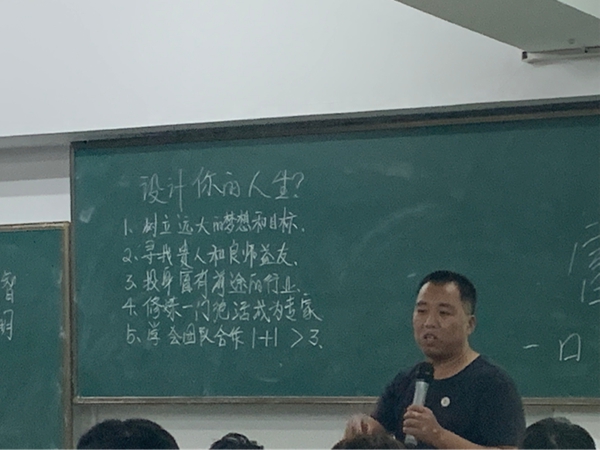 智
明
设计你的人生?
1、树立远大的梦想和目标、
2、寻找贵人和良师益友、
3、投身有前途的行业、
4、修炼一门绝活成为专家
5、学会团队合作 1+1>3、
一口